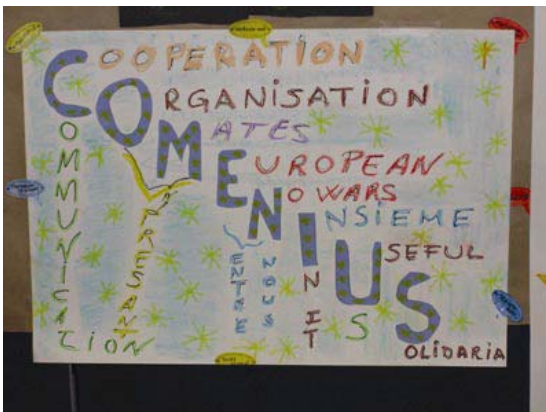 COOPERATION
ORGANISATION
MATES
EUROPEAN
NO WARS
INSIEME
USEFUL
SOLIDARIA
COMMUNICATION
ENTRE
NOUS
IN IT
US